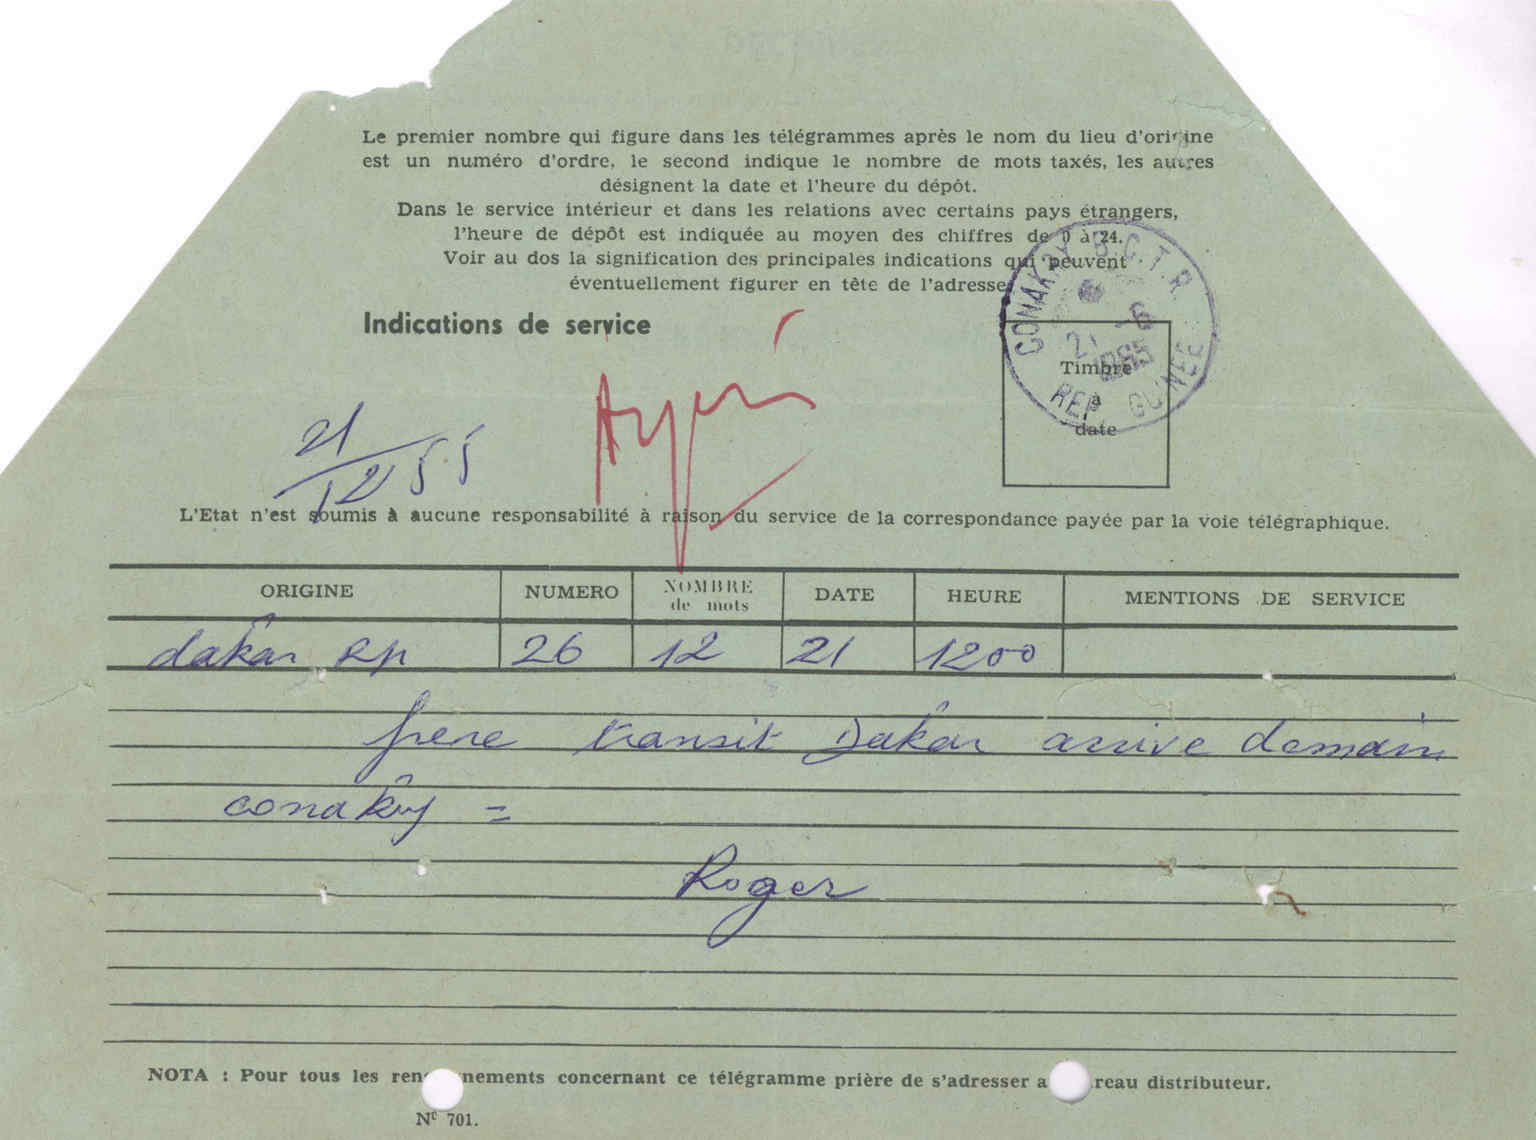 Le premier nombre qui figure dans les télégrammes après le nom du lieu d'origine
est un numéro d'ordre, le second indique le nombre de mots taxés, les autres
désignent la date et l'heure du dépôt.
Dans le service intérieur et dans les relations avec certains pays étrangers,
l'heure de dépôt est indiquée au moyen des chiffres de 0 à 24.
Voir au dos la signification des principales indications qui peuvent
éventuellement figurer en tête de l'adresse
CONAKRY B.C.T.R.
21 -6
1965
REP. GUINEE
Indications de service
Timbre
à
date
21
12 55
L'Etat n'est soumis à aucune responsabilité à raison du service de la correspondance payée par la voie télégraphique.
ORIGINE NUMERO NOMBRE de mots DATE HEURE MENTIONS DE SERVICE
dakar Rp 26 12 21 1200
frere transit Dakar arrive demain
conakry =
Roger
NOTA : Pour tous les ren nements concernant ce télégramme prière de s'adresser a reau distributeur.
Nº 701.